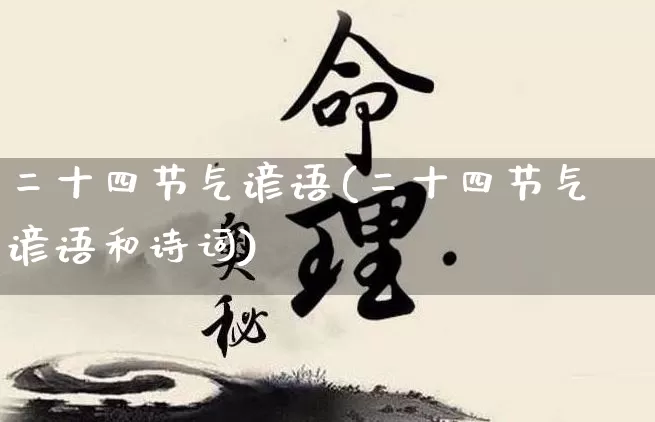 命理·
奥秘
二十四节气谚语(二十四节气
谚语和诗词)